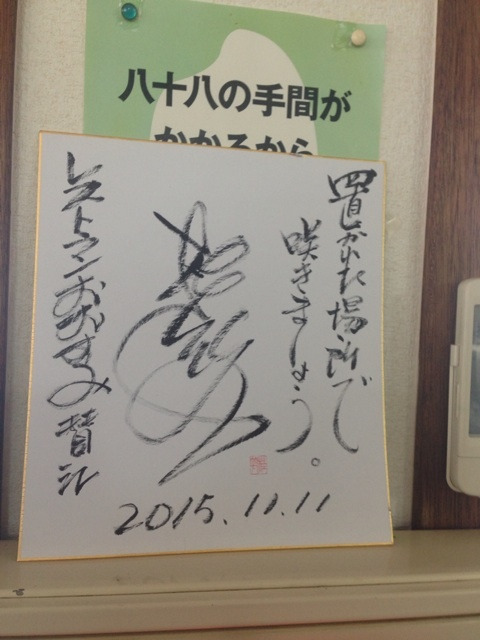 八十八の手間が
かかるから
置かれた場所で
咲きましょう。
レストランおおすみ賛江
2015.11.11